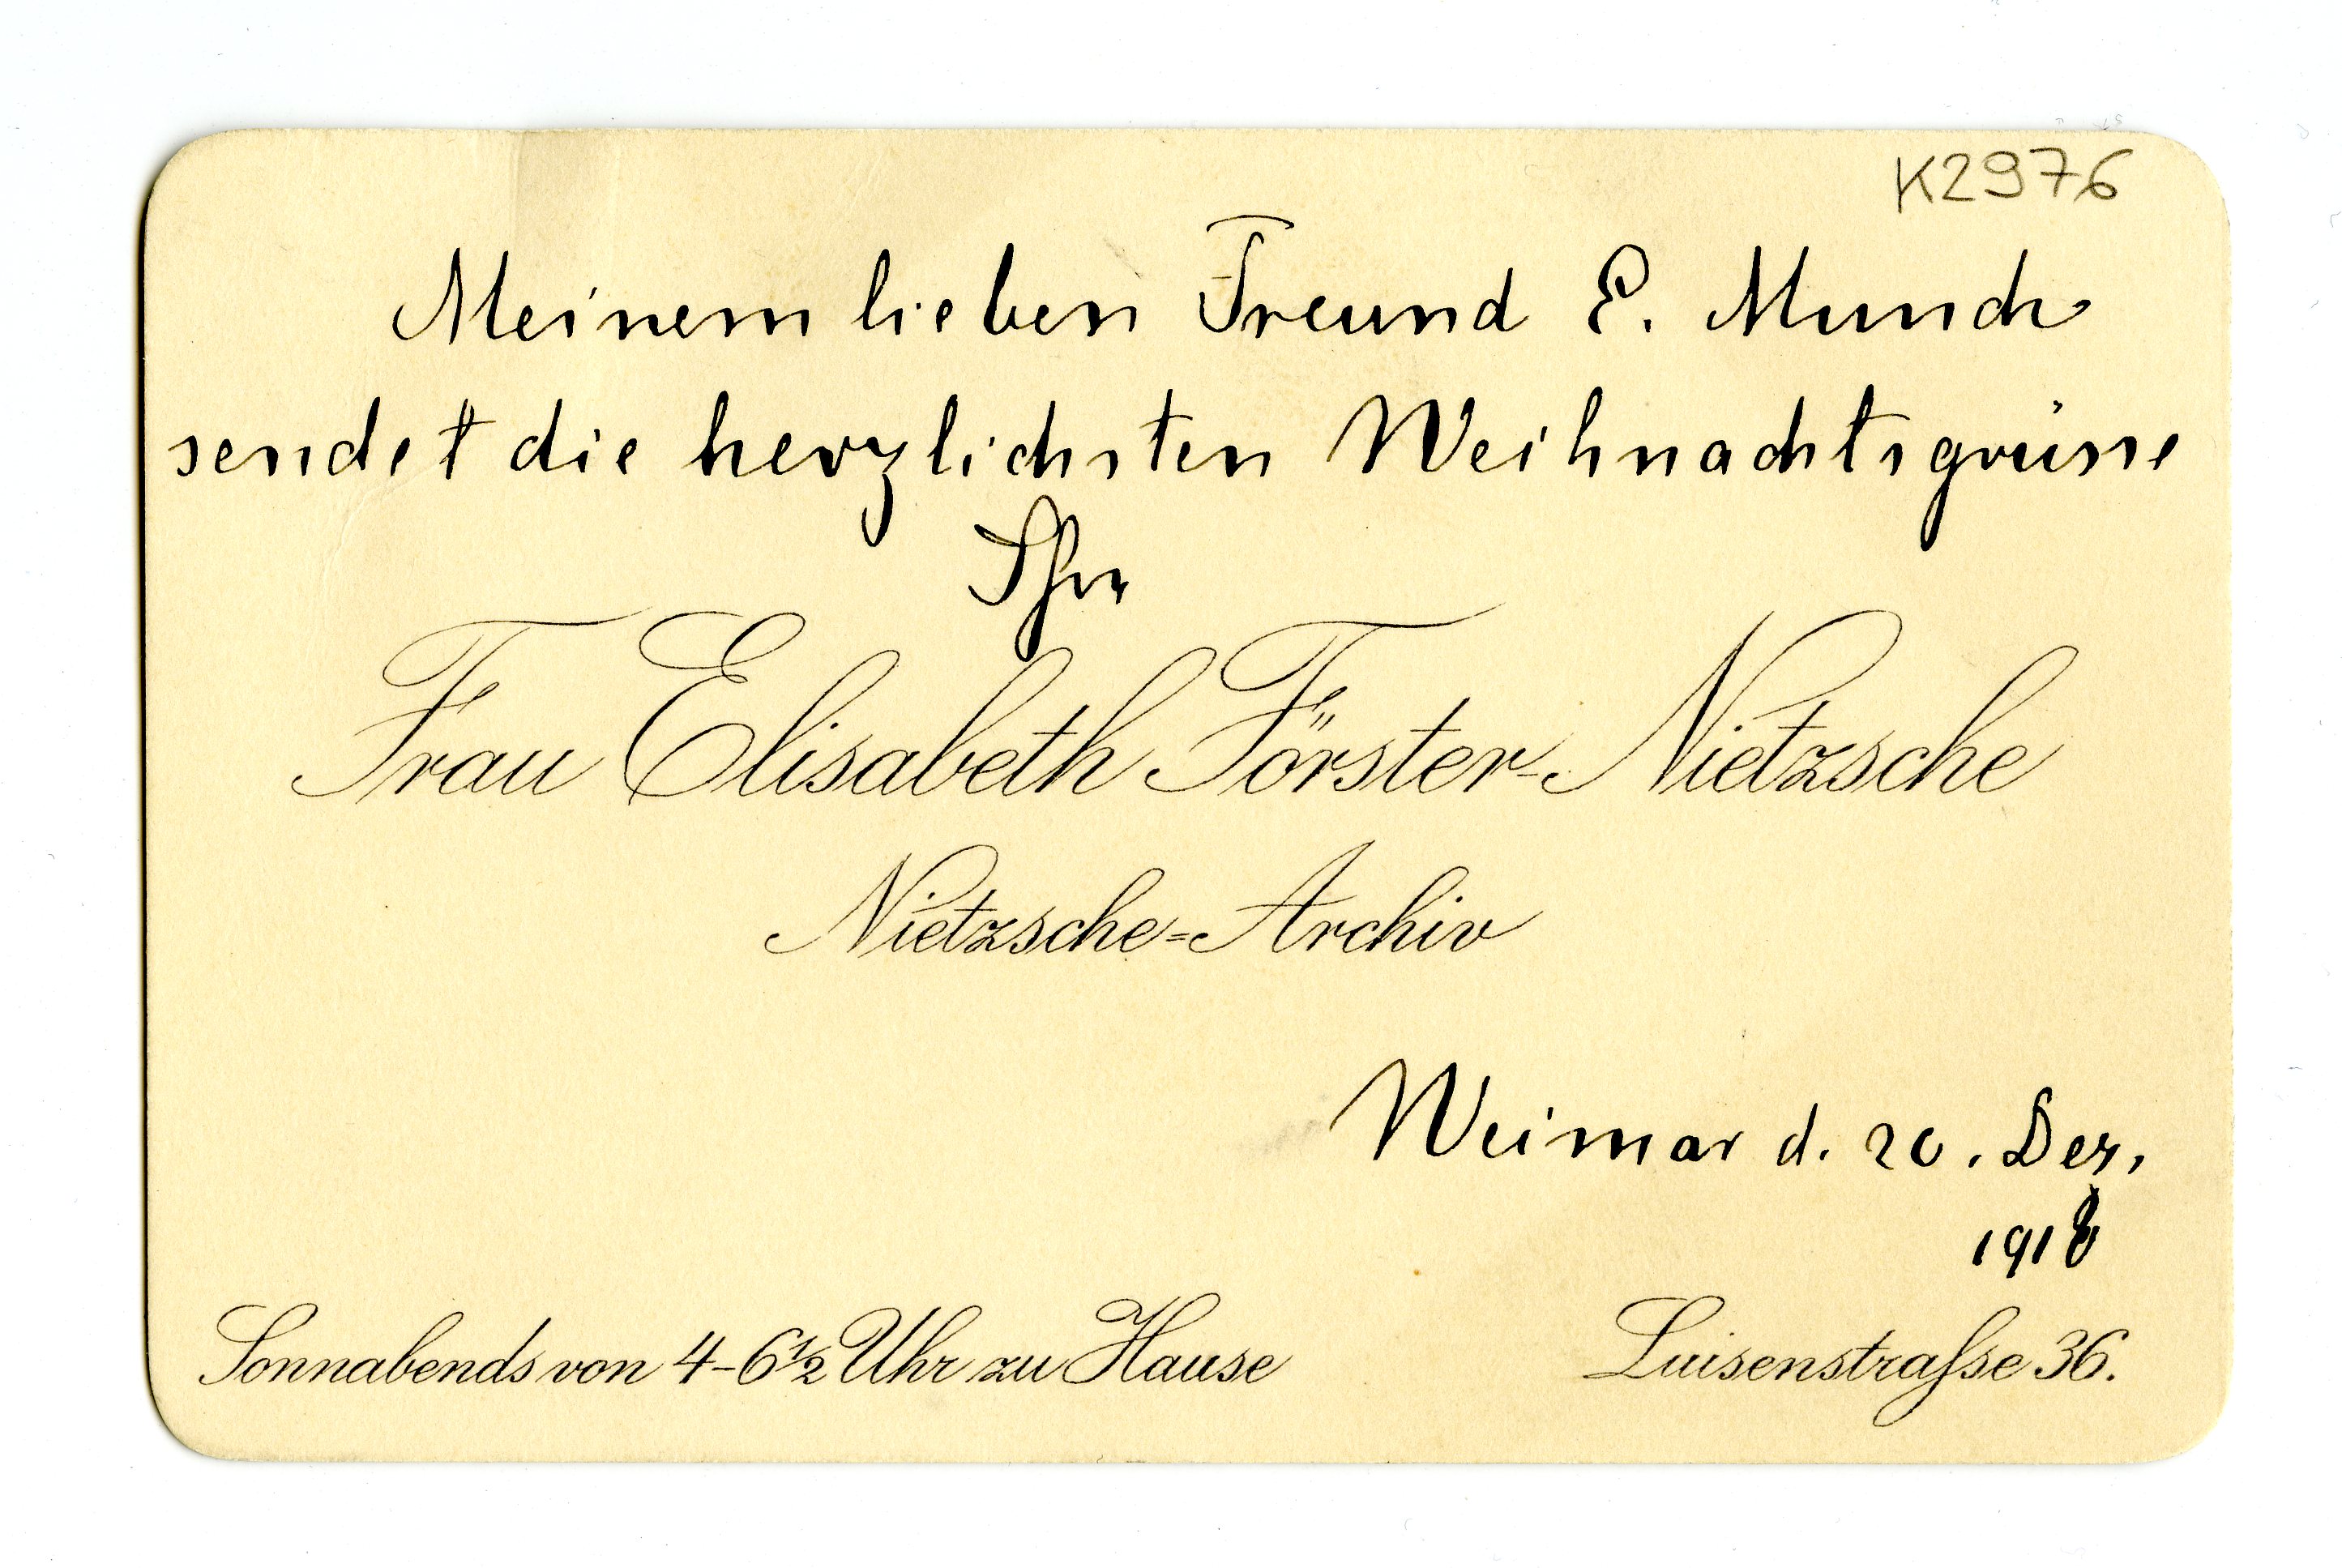 K2976
Meinem lieben Freund E. Munch
sendet die herzlichsten Weihnachtsgrüsse
Ihre
Frau Elisabeth Förster-Nietzsche
Nietzsche-Archiv
Weimar d. 20. Dez.
1918
Sonnabends von 4-6½ Uhr zu Hause
Luisenstraſse 36.